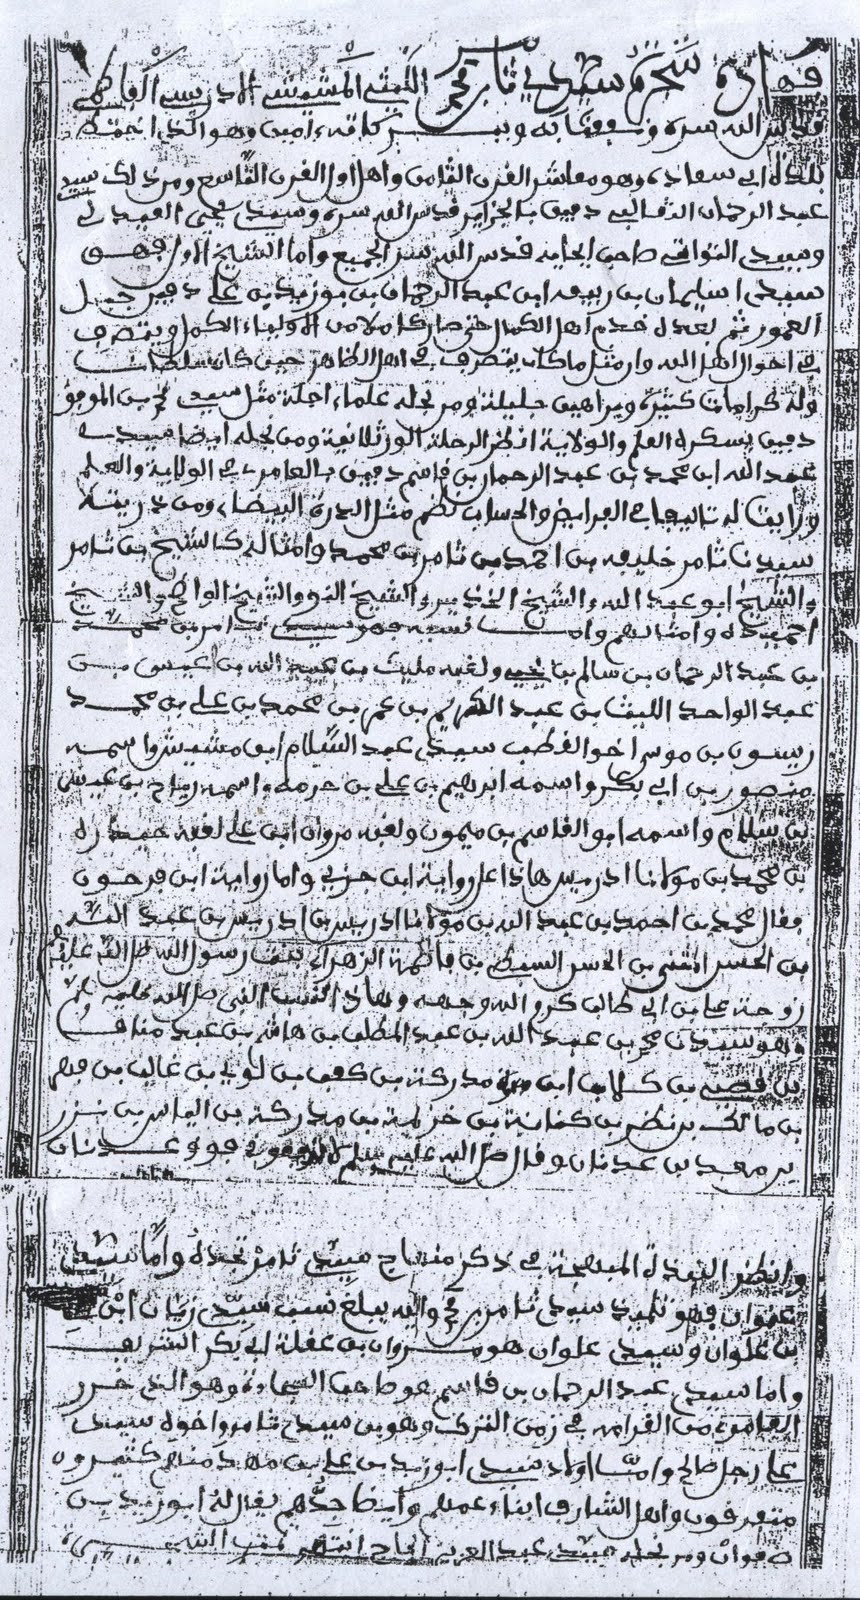 فهاذه شجرة سيدي ثامر بن محمد الشيشي الادريسي
قدس الله سره ونفعنا به وببركاته ءامين وهو الذي
بلدة ابي سعادة وهو معاشر القرن الثامن واهل اول القرن التاسع ومن ذلك سيدي
عبد الرحمان الثعالبي دفين بالجزاير قدس الله سره وسيدي يحيى العيدلي
وسيدي التواتي صاحب ابجايه قدس الله سر الجميع واما الشيخ الاول فهو
سيدي اسليمان بن ربيعه ابن عبد الرحمان بن بوزيد بن علي دفين جبل
العمور ثم بعده خدم اهل الكمال حتى صار كاملا من الاولياء الكمل ويتصرف
في احوال اهل الله وار مثل ما كان يتصرف في اهل الظاهر حين كان سلطانا
وله كرامات كثيرة وبراهين جليلة ومن نجله علماء اجلة مثل سيدي محمد بن الموفق
دفين بسكره العلم والولاية انظر الرحلة الورثلانية ومن نجله ايضا سيدي
عبد الله ابن محمد بن عبد الرحمان بن قاسم دفين بالعامرى في الولاية والعلم
ورايت له تاليفا في الفرايض والحساب نظم مثل الدرة البيضاء ومن ذريته
سيدنا ثامر خليفه بن احمد بن ثامر بن محمد وامثاله كالشيخ بن ثامر
والشيخ ابو عبد الله والشيخ الخذير والشيخ النوو والشيخ الواضح والشيخ
احميده وامثالهم واما نسبه فهو سيدي ثامر بن محمد
بن عبد الرحمان بن سالم بن يحيى ولقبه مليك بن عبد الله بن اعيسى بن
عبد الواحد الليث بن عبد الكريم بن عمر بن محمد بن علي بن محمد
ريسون بن موسى اخو القطب سيدي عبد السلام ابن مشيش واسمه
منصور بن ابي بكر واسمه ابراهيم بن علي بن حرمه واسمه رباح بن عيسى
بن سلام واسمه ابو القاسم بن ميمون ولقبه مروان ابن علي لقبه حيدره
بن محمد بن مولانا ادريس هاذا على رواية ابن جزي واما رواية ابن فرحون
فقال محمد بن احمد بن عبد الله بن مولانا ادريس بن ادريس بن عبد الله
بن الحسن المثنى بن الحسن السبط بن فاطمة الزهراء بنت رسول الله صلى الله عليه
زوجة علي بن ابي طالب كرم الله وجهه وهاذا النسب النبي صلى الله عليه
وهو سيدنا محمد بن عبد الله بن عبد المطلب بن هاشم بن عبد مناف
بن قصي بن كلاب ابن مرة مدركة بن كعب بن لؤي بن غالب بن فهر
بن مالك بن نظر بن كنانة بن خزيمة بن مدركة بن الياس بن نزر
بن معد بن عدنان وقال صلى الله عليه وسلم لا فوق عدنان
وانظر النبدة المبهجة في ذكر منهاج سيدي ثامر تجده واما سيدي
علوان فهو تلميذ سيدي ثامر بن محمد واليه يبلغ نسب سيدي زيان ابن
بن علوان وسيدي علوان هو مروان بن عقلة ابي بكر الشريف
واما سيدي عبد الرحمان بن قاسم هو صاحب السجادة وهو الذي حرر
العامرى من الغرامه في زمن الترك وهو بن سيدي ثامر واخوه سيدي
علي رجل صالح واما اولاد سيدي ابوزيد بن علي بن مهد منهم كثيرون
متفرقون واهل الشارف ابناء عمهم وايضا جدهم يقال له ابوزيد بن
صفوان ومن نجله سيدي عبد العزيز الحاج انتهى